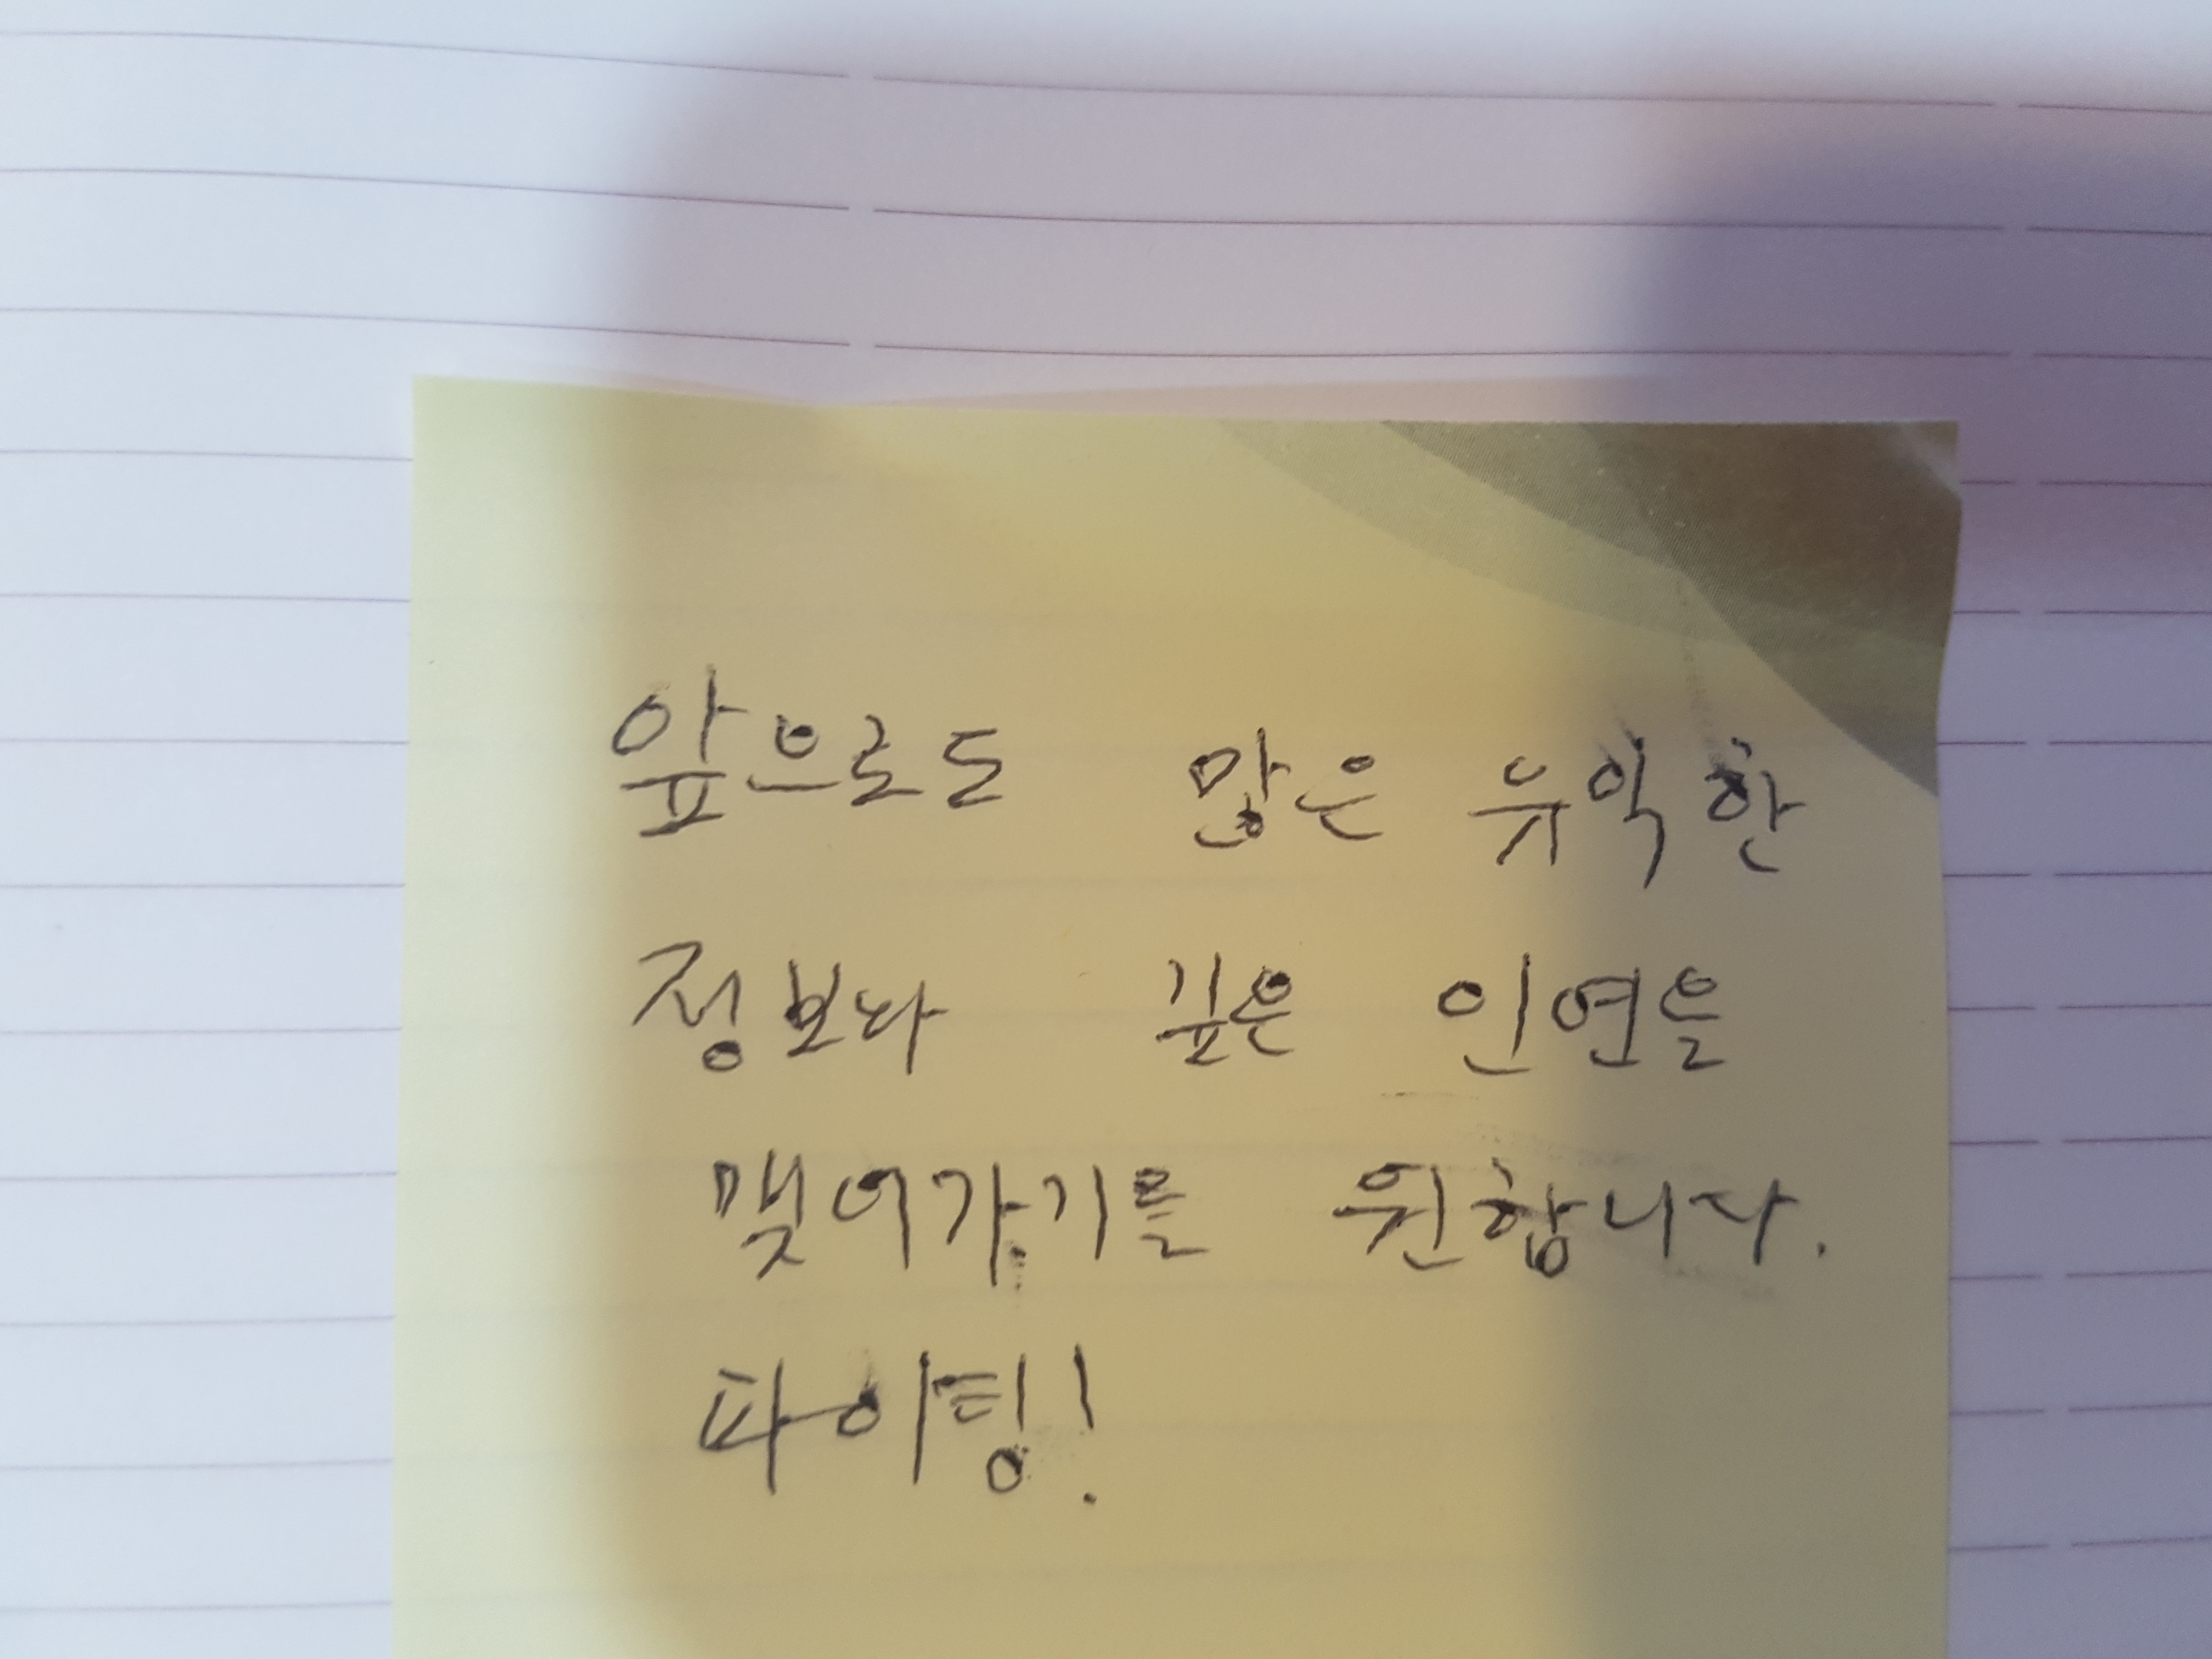 앞으로도 많은 유익한
정보나 깊은 인연을
맺어가기를 원합니다.
파이팅!